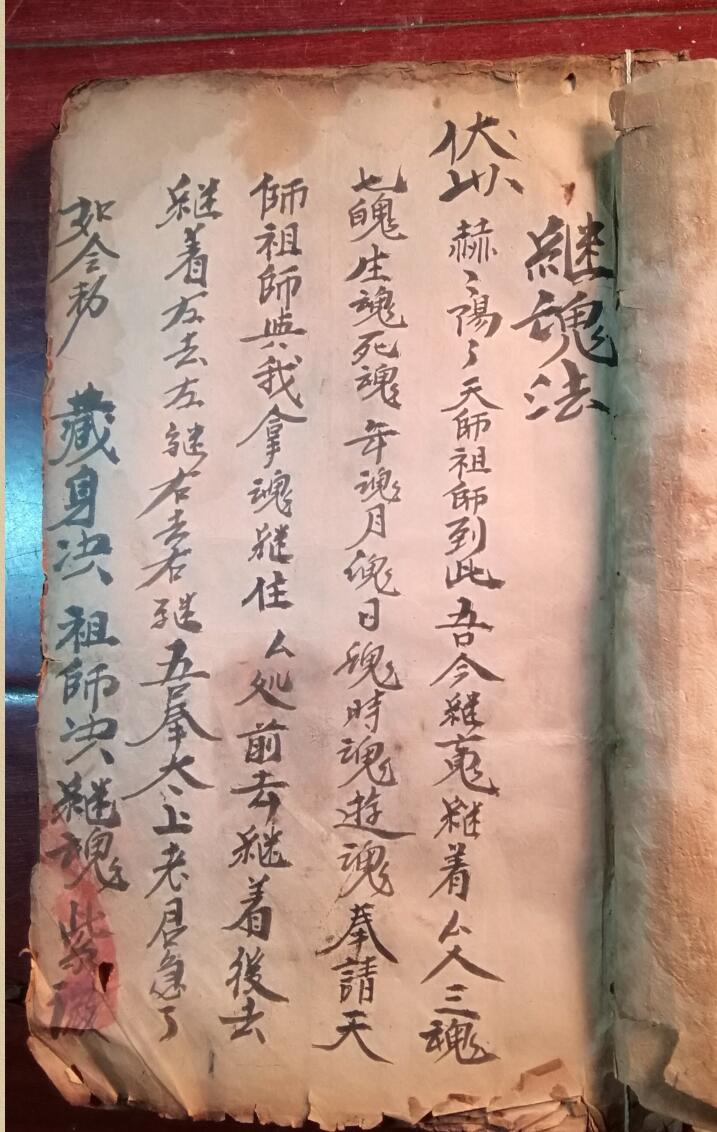 継魂法
伏以 赫〻陽〻天師祖師到此吾今継魂継着厶人三魂
七魄生魂死魂年魂月魂日魂時魂遊魂奉請天
師祖師與我拿魂継住厶処前去継着後去
継着左去左継右去右継吾奉太上老君急〻
如令勅 藏身决祖師决継魂